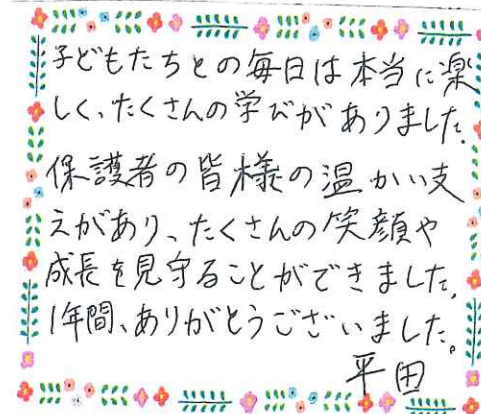 子どもたちとの毎日は本当に楽
しく、たくさんの学びがありました。
保護者の皆様の温かい支
えがあり、たくさんの笑顔や
成長を見守ることができました。
1年間、ありがとうございました。
平田